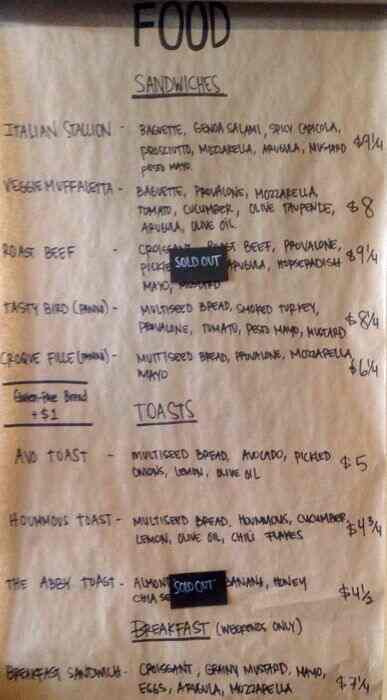 FOOD
SANDWICHES
ITALIAN STALLION - BAGUETTE, GENOA SALAMI, SPICY CAPICOLA,
PROSCIUTTO, MOZZARELLA, ARUGULA, MUSTARD $9 1/4
PESTO MAYO
VEGGIE MUFFALETTA - BAGUETTE, PROVALONE, MOZZARELLA,
TOMATO, CUCUMBER, OLIVE TAUPENDE, $8
ARUGULA, OLIVE OIL
ROAST BEEF - CROISSANT, ROAST BEEF, PROVALONE,
SOLD OUT ARUGULA, HORSERADISH $9 1/4
MAYO, MUSTARD
TASTY BIRD (PANINI) - MULTISEED BREAD, SMOKED TURKEY,
PROVALONE, TOMATO, PESTO MAYO, MUSTARD $8 1/4
CROQUE FILLE (PANINI) - MULTISEED BREAD, PROVALONE, MOZZARELLA,
MAYO $6 1/4
Gluten-Free Bread
+ $1
TOASTS
AVO TOAST - MULTISEED BREAD, AVOCADO, PICKLED
ONIONS, LEMON, OLIVE OIL $5
HOUMMOUS TOAST - MULTISEED BREAD, HOUMMOUS, CUCUMBER,
LEMON, OLIVE OIL, CHILI FLAKES $4 3/4
THE ABBY TOAST - ALMOND SOLD OUT BANANA, HONEY
CHIA $4 1/2
BREAKFAST (WEEKENDS ONLY)
BREAKFAST SANDWICH - CROISSANT, GRAINY MUSTARD, MAYO,
EGGS, ARUGULA, MOZZARELLA $7 1/4